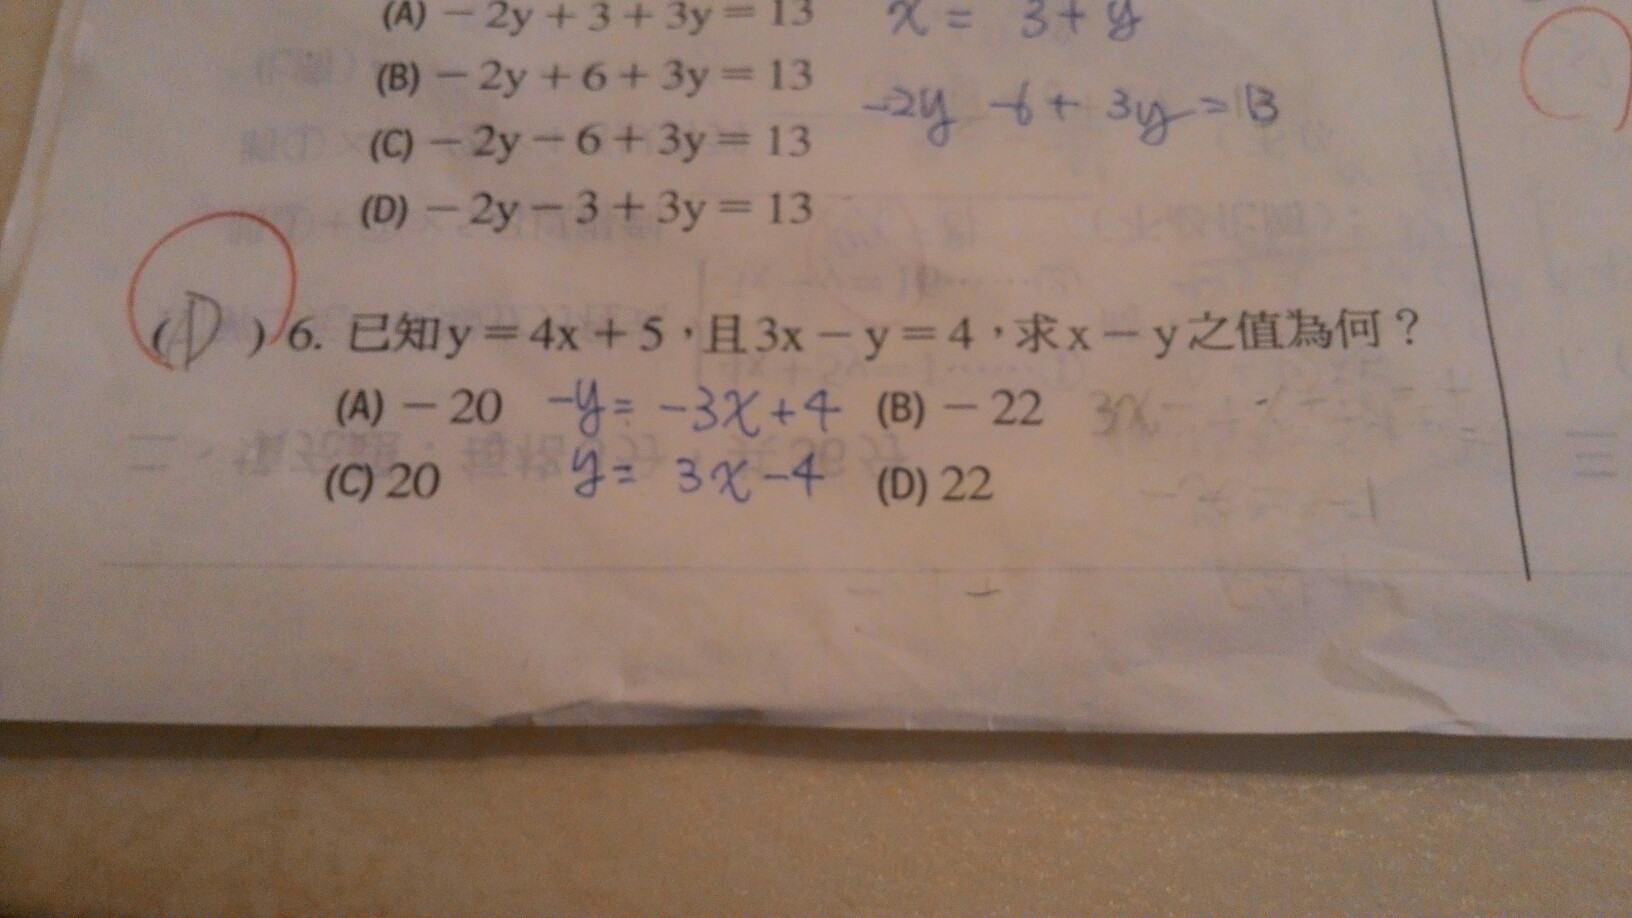 (A) －2y＋3＋3y＝13 x = 3+y
(B) －2y＋6＋3y＝13
-2y -6+ 3y=13
(C) －2y－6＋3y＝13
(D) －2y－3＋3y＝13
(D) 6. 已知y＝4x＋5，且3x－y＝4，求x－y之值為何？
(A) －20 -y= -3x+4 (B) －22
(C) 20 y= 3x-4 (D) 22